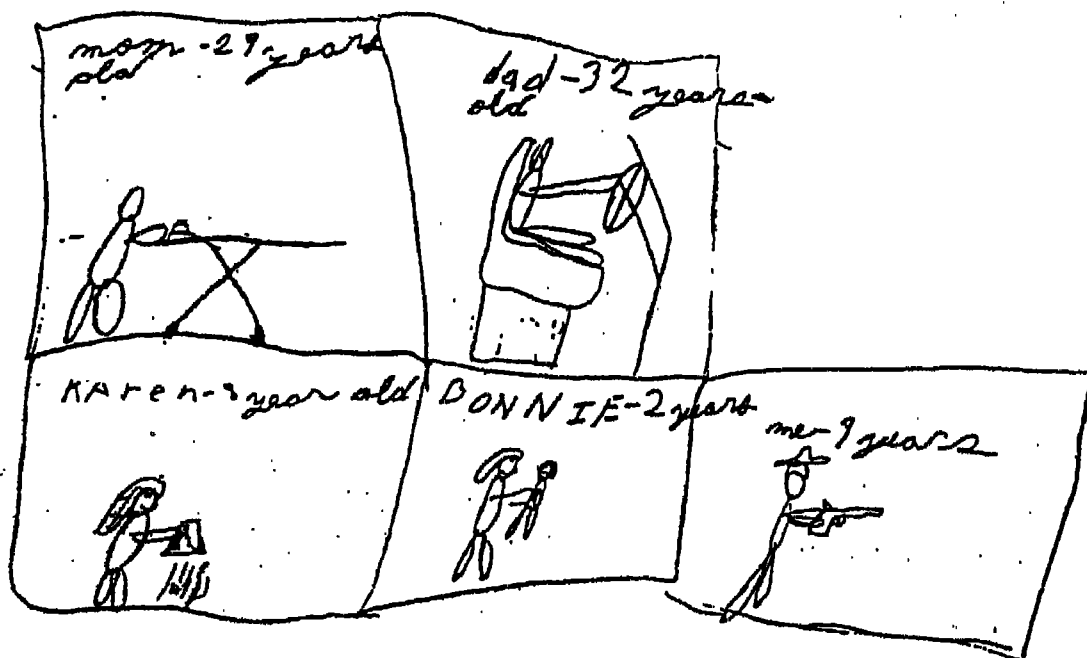 mom -29 years
old
dad -32 years
old
KAren-8 year old
BONNIE-2 years
me-9 years